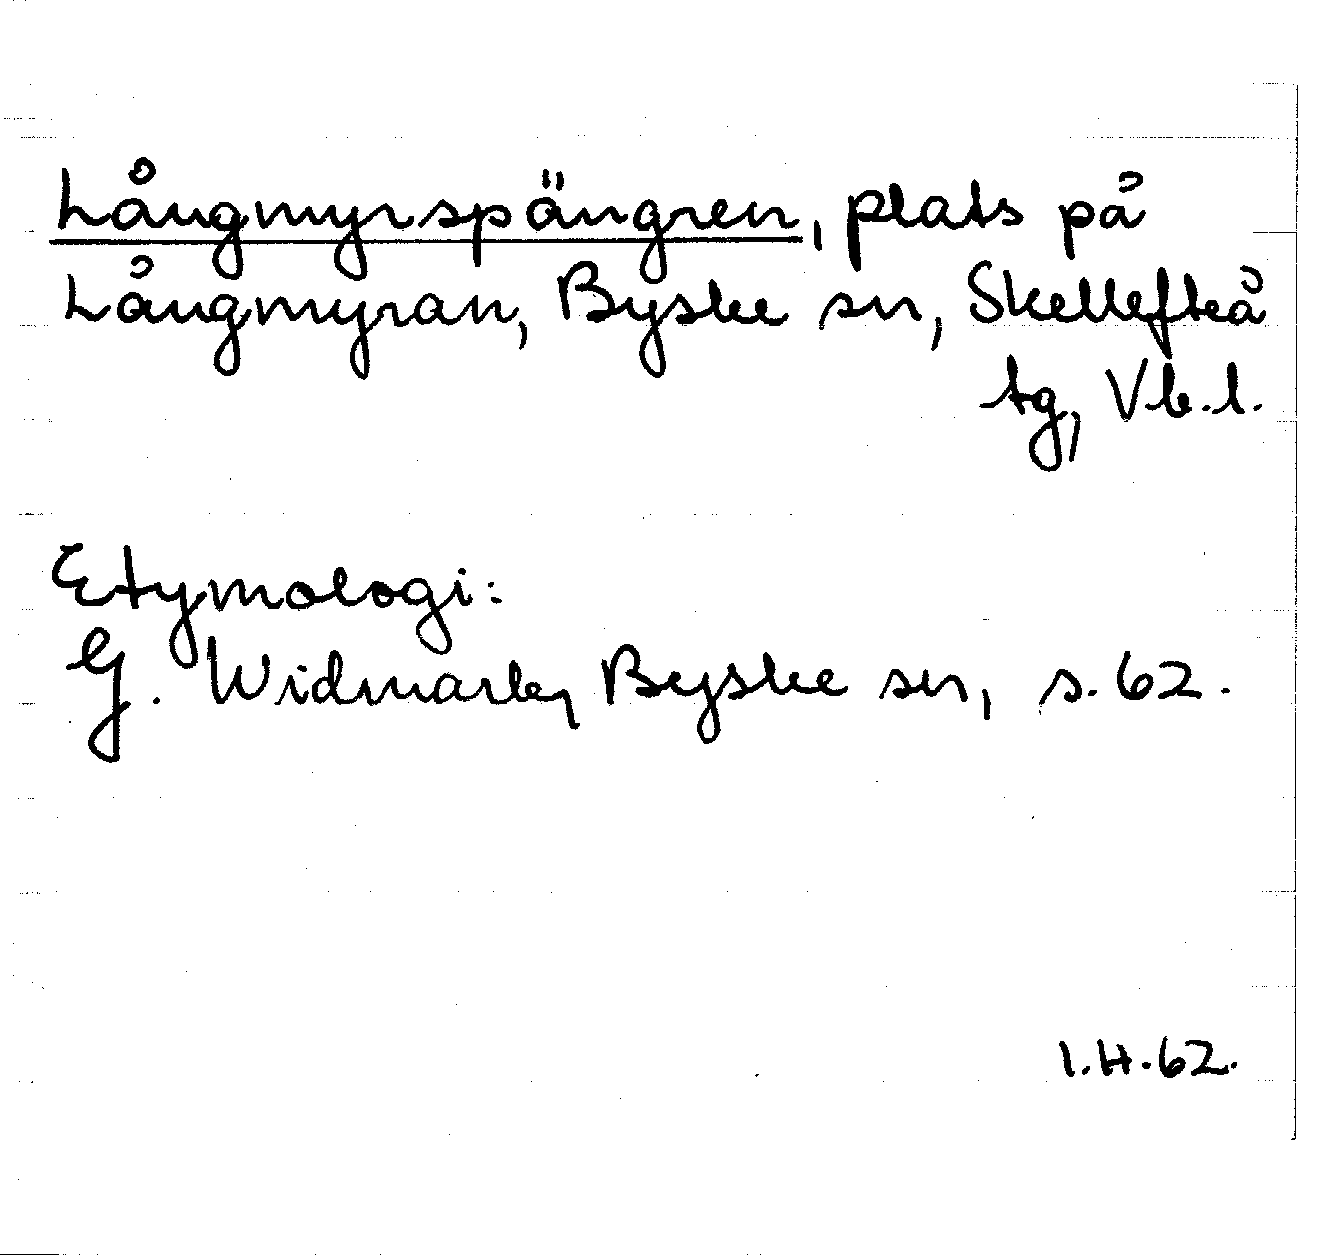 Långmyrspängren, plats på
Långmyran, Byske sn, Skellefteå
tg, Vb.l.
Etymologi:
G. Widmark, Byske sn, s. 62.
I.H.62.